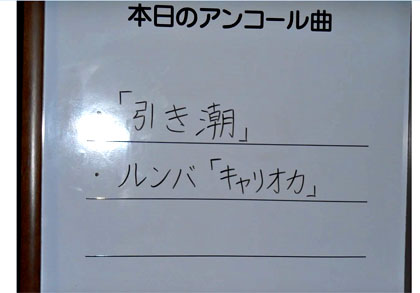 本日のアンコール曲
・「引き潮」
・ルンバ「キャリオカ」